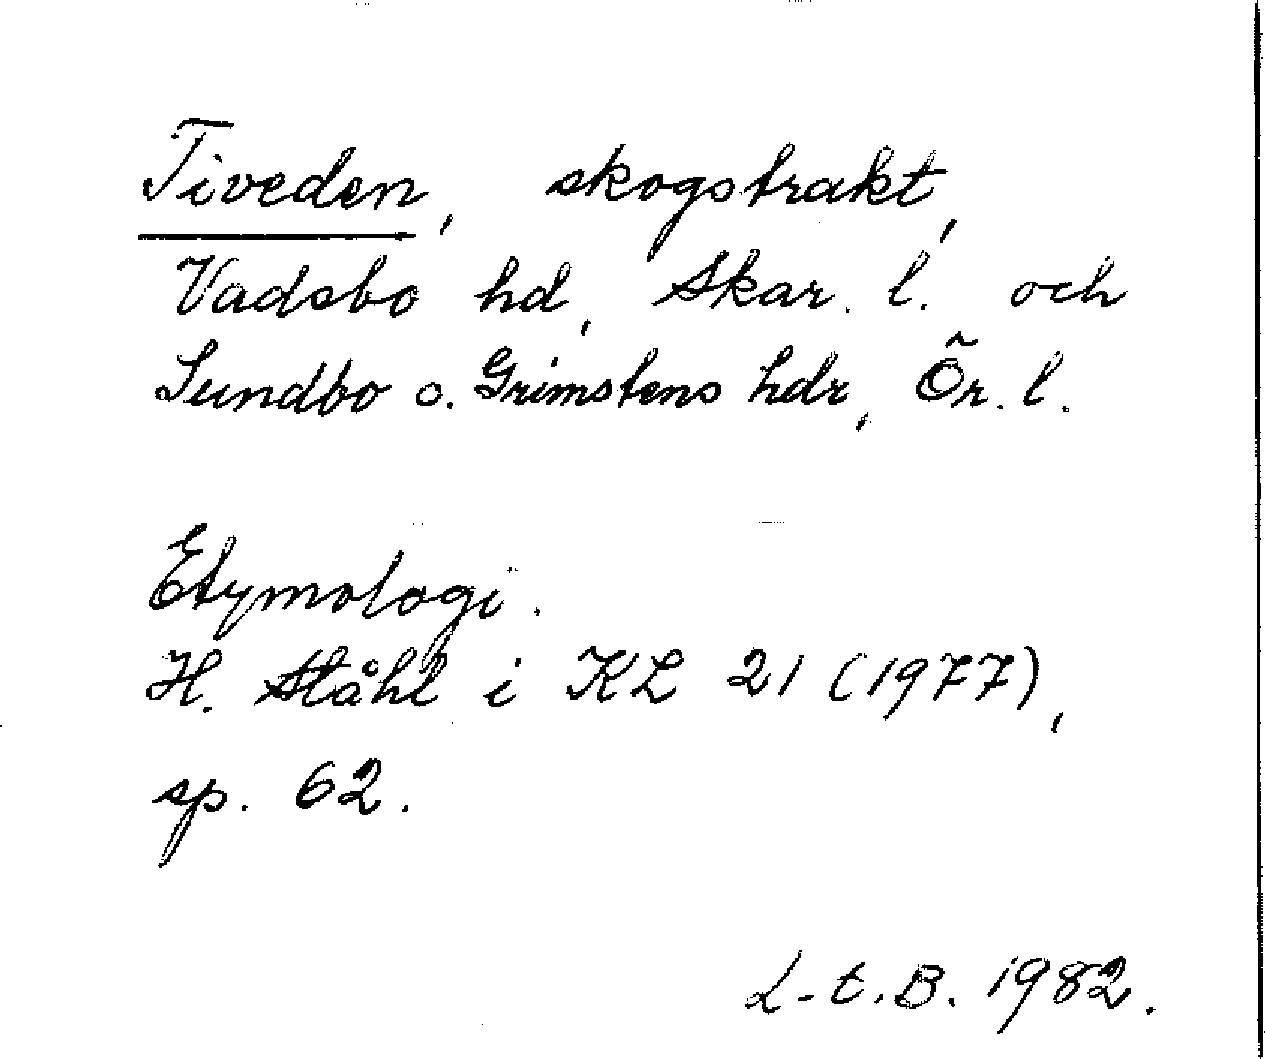 Tiveden, skogstrakt,
Vadsbo hd, Skar. l. och
Sundbo o. Grimstens hdr, Ör. l.
Etymologi.
H. Ståhl i KL 21 (1977),
sp. 62.
L-t.B. 1982.